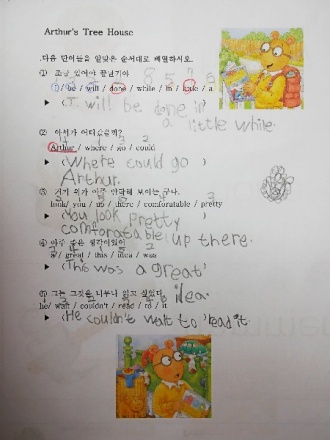 Arthur's Tree House
다음 단어들을 알맞은 순서대로 배열하시오.
① 조금 있어야 끝날거야
I / be / will / done / while / in / little / a
▶ (I will be done in
a little while.
② 아서가 어디있을까?
Arthur / where / go / could
▶ (Where could go
Arthur.
③ 거기 위가 아주 안락해 보이는구나.
look / you / up / there / comforatable / pretty
▶ (You look pretty
comforatable up there.
④ 아주 좋은 생각이었어
a / great / this / idea / was
▶ (This was a great
idea.
⑤ 그는 그것을 너무나 읽고 싶었다.
he / wait / couldn't / read / to / it
▶ (He couldn't wait to read it.